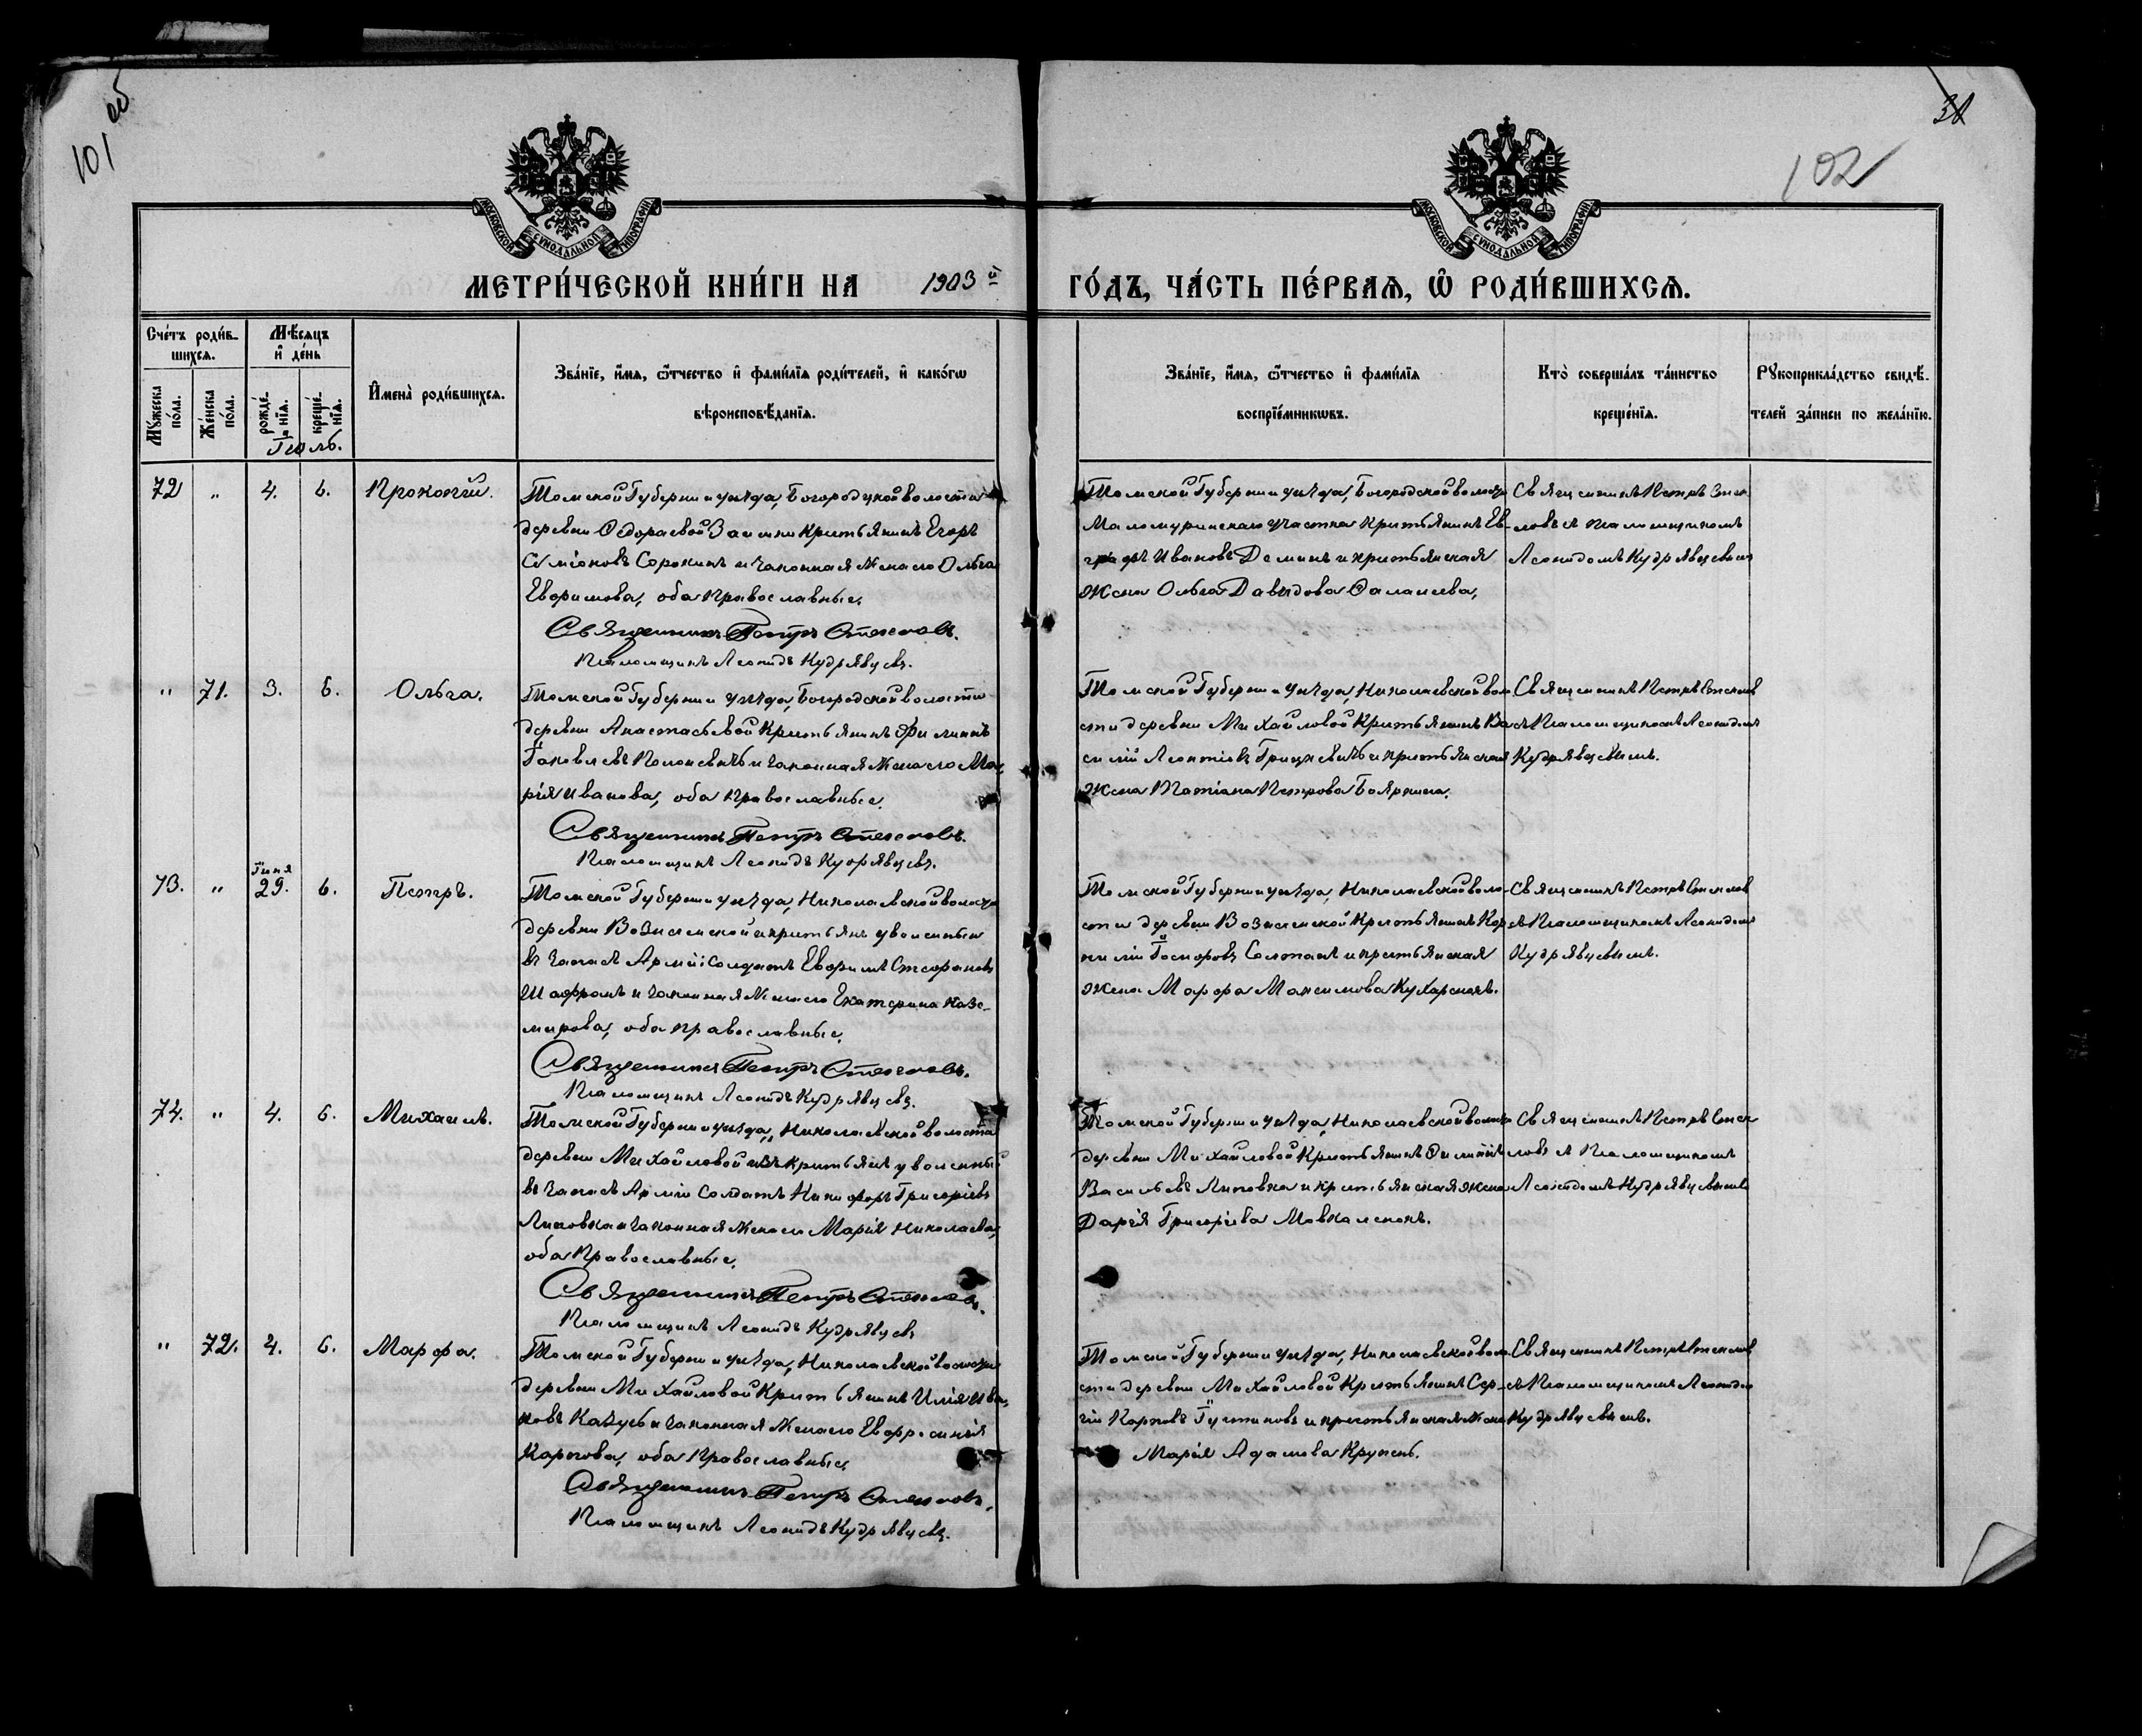 101 об
38
102
МОСКОВСКОЙ СѴНОДАЛЬНОЙ ТИПОГРАФІИ
МОСКОВСКОЙ СѴНОДАЛЬНОЙ ТИПОГРАФІИ
МЕТРИ́ЧЕСКОЙ КНИ́ГИ НА 1903й ГО́ДЪ, ЧА́СТЬ ПЕ́РВАѦ, Ѡ҆ РОДИ́ВШИХСѦ.
Сче́тъ роди́в-
шихсѧ.
Мꙋ́жеска
по́ла.
Же́нска
по́ла.
Мѣ́сѧцъ
и҆ де́нь
рожде́-
нїѧ.
креще́-
нїѧ.
Іюль.
И҆мена̀ роди́вшихсѧ.
Зва́нїе, и҆́мѧ, ѻ҆́тчество и҆ фами́лїѧ роди́телей, и҆ како́гѡ
вѣроисповѣ́данїѧ.
Зва́нїе, и҆́мѧ, ѻ҆́тчество и҆ фами́лїѧ
воспрїе́мникѡвъ.
Кто̀ соверша́лъ та́инство
креще́нїѧ.
Рꙋкоприкла́дство свидѣ́-
телей за́писи по жела́нїю.
72 " 4. 6. Прокопій.
Томской Губерніи уѣзда, Богородской волости
деревни Федораевой Заимки крестьянинъ Егоръ
Симіоновъ Сорокинъ и законная жена его Ольга
Евфимова, оба православные.
Священникъ Петръ Стекловъ.
Псаломщикъ Леонидъ Кудрявцевъ.
Томской Губерніи уѣзда, Богородской волости
участка крестьянинъ Ев-
графъ Ивановъ Деминъ и крестьянская
жена Ольга Давидова
Священникъ Петръ Стек-
ловъ съ псаломщикомъ
Леонидомъ Кудрявцевымъ
" 71. 3. 6. Ольга.
Томской Губерніи уѣзда, Богородской волости
деревни Анастасьевой крестьянинъ Филиппъ
Іаковлевъ и законная жена его Ма-
рія Иванова, оба православные.
Священникъ Петръ Стекловъ.
Псаломщикъ Леонидъ Кудрявцевъ.
Томской Губерніи уѣзда, Николаевской воло-
сти деревни Михайловой крестьянинъ Ва-
силій Леонтіевъ Грицкевичъ и крестьянская
жена Татіана Петрова Бояркина.
Священникъ Петръ Стекловъ
съ псаломщикомъ Леонидомъ
Кудрявцевымъ.
73. " Іюня 29. 6. Петръ.
Томской Губерніи уѣзда, Николаевской волости
деревни Вознесенской крестьянъ уволенный
въ запасъ Арміи солдатъ Евфимъ Стефановъ
Шафранъ и законная жена его Екатерина Казе-
мирова, оба православные.
Священникъ Петръ Стекловъ.
Псаломщикъ Леонидъ Кудрявцевъ.
Томской Губерніи уѣзда, Николаевской воло-
сти деревни Вознесенской крестьянинъ Кор-
нилій Солтанъ и крестьянская
жена Марфа Максимова Кухаренокъ.
Священникъ Петръ Стекловъ
съ псаломщикомъ Леонидомъ
Кудрявцевымъ.
74. " 4. 6. Михаилъ.
Томской Губерніи уѣзда, Николаевской волости
деревни Михайловой изъ крестьянъ уволенный
въ запасъ Арміи солдатъ Никифоръ Григоріевъ
Липовка и законная жена его Марія Николаева,
оба православные.
Священникъ Петръ Стекловъ.
Псаломщикъ Леонидъ Кудрявцевъ
Томской Губерніи уѣзда, Николаевской волости
деревни Михайловой крестьянинъ
Васильевъ Липовка и крестьянская жена
Дарія Григоріева
Священникъ Петръ Стек-
ловъ съ псаломщикомъ
Леонидомъ Кудрявцевымъ
" 72. 4. 6. Марфа.
Томской Губерніи уѣзда, Николаевской волости
деревни Михайловой крестьянинъ Илія Ива-
новъ и законная жена его Евфросинія
Карпова, оба православные.
Священникъ Петръ Стекловъ.
Псаломщикъ Леонидъ Кудрявцевъ.
Томской Губерніи уѣзда, Николаевской воло-
сти деревни Михайловой крестьянинъ Сер-
гій Карповъ Іустиновъ и крестьянская жена
Марія Адамова Крупень.
Священникъ Петръ Стекловъ
съ псаломщикомъ Леонидомъ
Кудрявцевымъ.